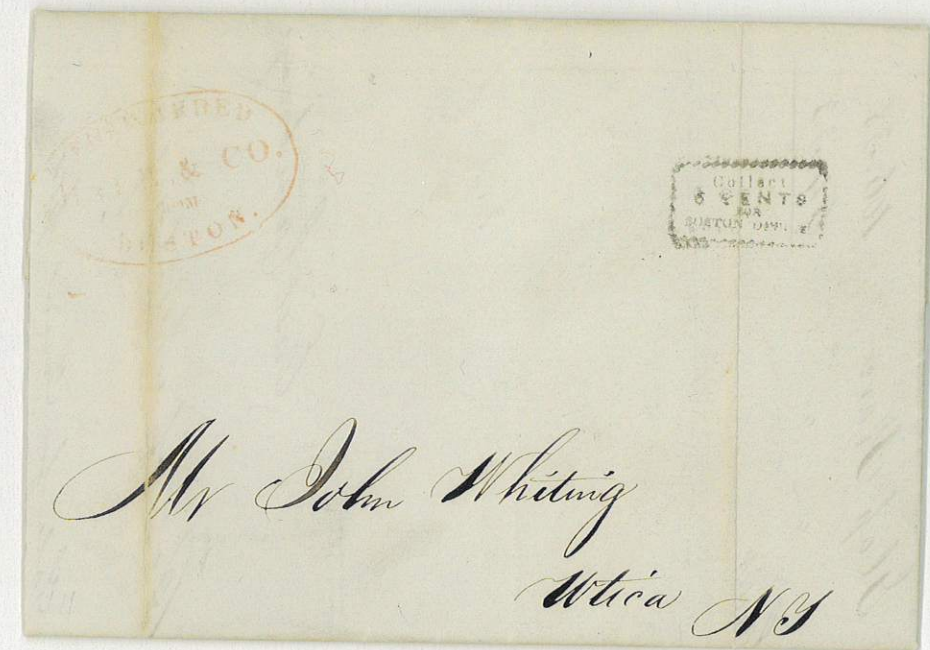 FORWARDED
& CO.
FROM
BOSTON.
Collect
6 CENTS
FOR
BOSTON OFFICE
Mr John Whiting
Utica NY